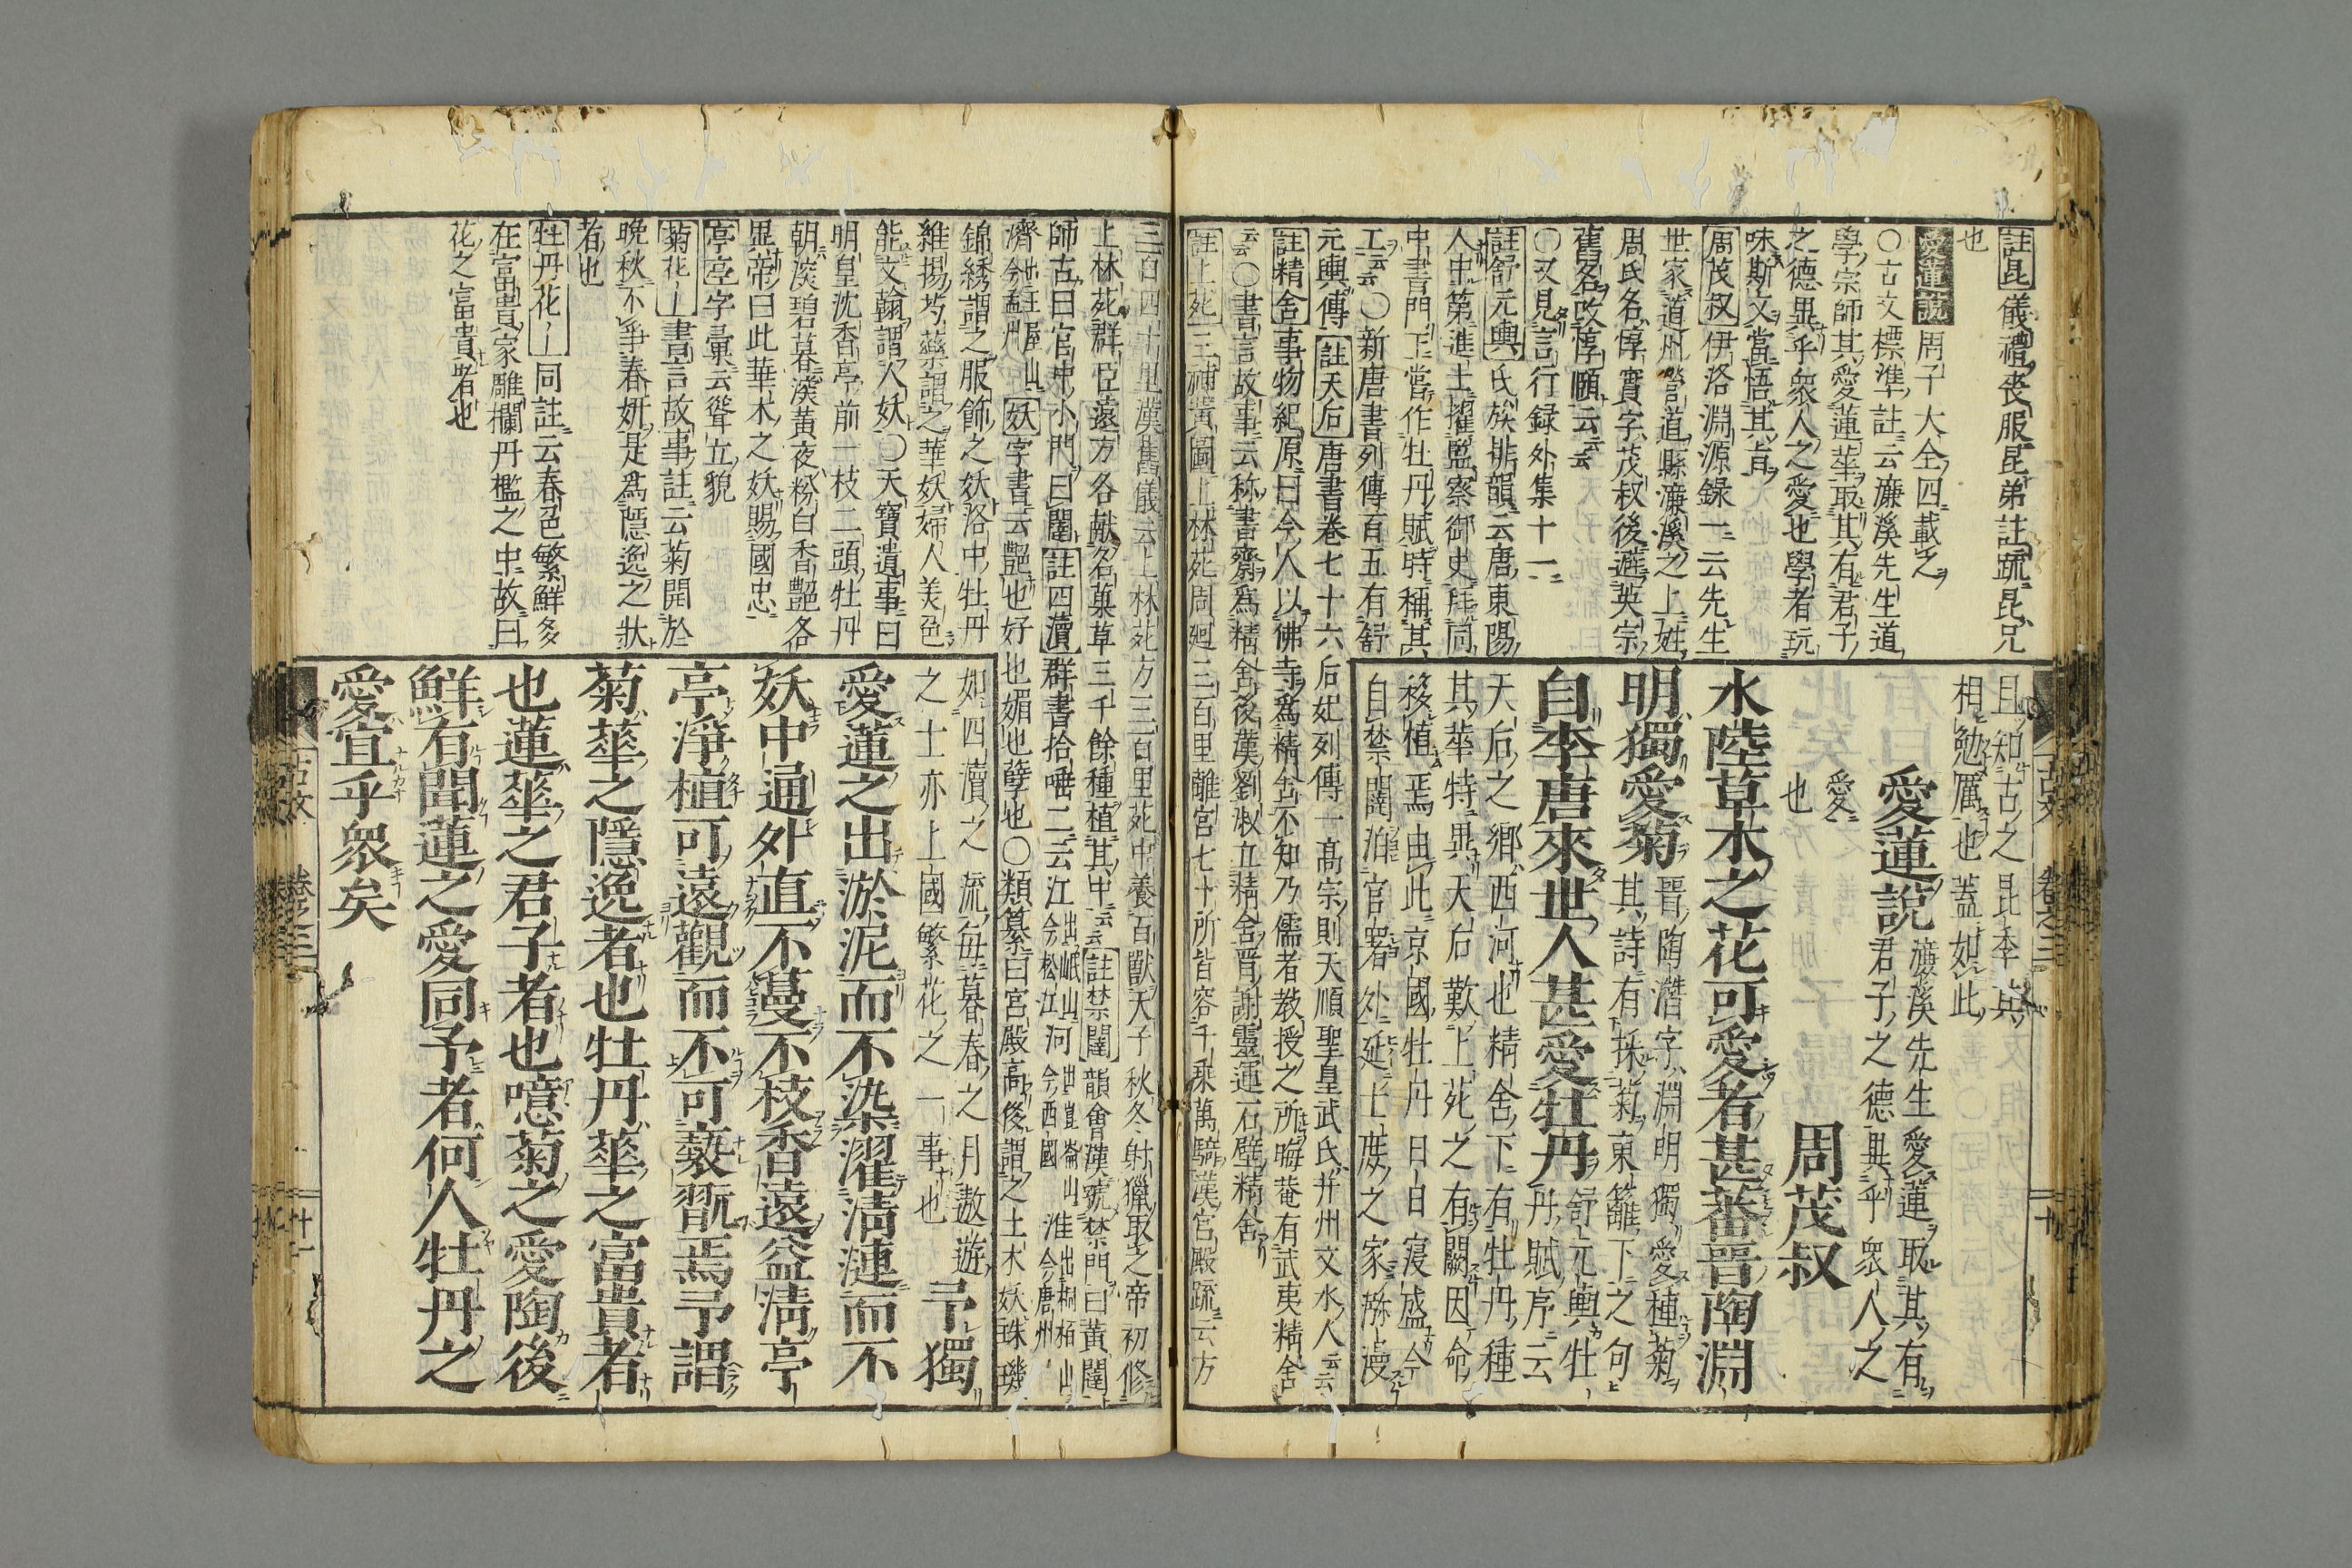 註昆儀禮喪服昆弟註疏昆兄
也
愛蓮説周子大全四載之
○古文標準註云濂溪先生道
學宗師其愛蓮華取其有君子
之德異乎衆人之愛也學者玩
味斯文當悟其旨
周茂叔伊洛淵源録一云先生
世家道州營道縣濂溪之上姓
周氏名惇實字茂叔後避英宗
舊名改惇頤云云
○又見言行録外集十一
註舒元輿氏族排韻云唐東陽
人中第進士擢監察御史拜同
中書門下當作牡丹賦時稱其
工云云○新唐書列傳百五有舒
元輿傳註天后唐書卷七十六后妃列傳一高宗則天順聖皇武氏并州文水人云云
註精舍事物紀原曰今人以佛寺爲精舍不知乃儒者教授之所晦菴有武夷精舍
云云○書言故事云称書齋爲精舍後漢劉淑立精舍晋謝靈運石壁精舍
註上苑三補黄圖上林苑周廻三百里離宮七十所皆容千乗萬騎漢宮殿疏云方
且知古之昆季與
相勉厲也蓋如此
愛蓮説濂溪先生愛蓮取其有
君子之德異乎衆人之
愛
也
周茂叔
水陸草木之花可愛者甚蕃晋陶淵
明獨愛菊晋陶潜字淵明獨愛種菊
其詩有採菊東籬下之句
自李唐來世人甚愛牡丹舒元輿牡
丹賦序云
天后之鄉西河也精舍下有牡丹種
其華特異天后歎上苑之有闕因命
移植焉由此京國牡丹日日寖盛今
自禁闥洎官署外延士庶之家瀰漫
三百四十里漢舊儀云上林苑方三百里苑中養百獸天子秋冬射獵取之帝初修
上林苑群臣遠方各献名菓草三千餘種植其中云云註禁闥韻會漢號禁門曰黄闥
師古曰宮中小門曰闥註四瀆群書拾唾二云江出岷山今松江河出崑崙山今西國淮出桐栢山今唐州
濟出王屋山今孟州妖字書云艶也好也媚也孽也○類纂曰宮殿高俊謂之土木妖珠璣
錦綉謂之服飾之妖洛中牡丹
維揚芍薬謂之華妖婦人美色
能文翰謂人妖○天寶遺事曰
明皇沈香亭前一枝二頭牡丹
朝淡碧暮淡黄夜粉白香艶各
異帝曰此華木之妖賜國忠
亭亭字彙云聳立貌
菊花書言故事註云菊開於
晩秋不爭春妍是爲隱逸之狀
者也
牡丹花同註云春色繁鮮多
在富貴家雕欄丹檻之中故曰
花之富貴者也
如四瀆之流毎暮春之月遨遊
之士亦上國繁花之一事也予獨
愛蓮之出淤泥而不染濯清漣而不
妖中通外直不蔓不枝香遠益清亭
亭淨植可遠觀而不可褻翫焉予謂
菊華之隱逸者也牡丹華之富貴者
也蓮華之君子者也噫菊之愛陶後
鮮有聞蓮之愛同予者何人牡丹之
愛宜乎衆矣